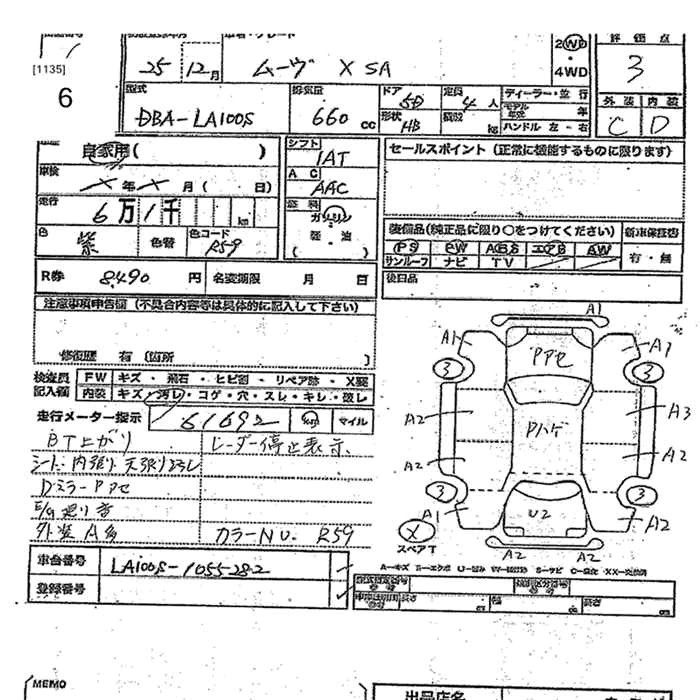 [1135]
6
25 12月 ムーヴ X SA
2WD
4WD
評価点
3
外装 内装
C D
型式
DBA-LA100S
排気量
660 cc
ドア 5D
形状 HB
定員 4 人
積載 kg
ディーラー・並行
モデル年式 年
ハンドル 左・右
自家用( )
車検
年 月( 日)
走行
6万1千 km
色 紫 色替 色コード R59
シフト
IAT
AC
AAC
燃料
ガソリン
軽・油
( )
セールスポイント(正常に機能するものに限ります)
装備品(純正品に限り○をつけてください) 新車保証書
PS PW ABS エアB AW
サンルーフ ナビ TV
有・無
後日品
R券 8,490 円 名変期限 月 日
注意事項申告欄(不具合内容等は具体的に記入して下さい)
修復歴 有(箇所 )
検査員記入欄
FW キズ・飛石・ヒビ割・リペア跡・X要
内装 キズ・汚レ・コゲ・穴・スレ・キレ・破レ
走行メーター指示 61692 km マイル
BT上がり レーダー停止表示、
シート・内張り天張り汚レ
DミラーPアセ
E/G廻り音
外装A多 カラーNo. R59
車台番号 LA100S-1055282
登録番号
A1
A1 A1
Pアセ
3 3
A2 Pハゲ A3
A2 A2
3 3
A1 U2 A2
A2 A2
X
スペアT
A－キズ
長さ cm 幅 cm 高さ cm
MEMO
出品店名